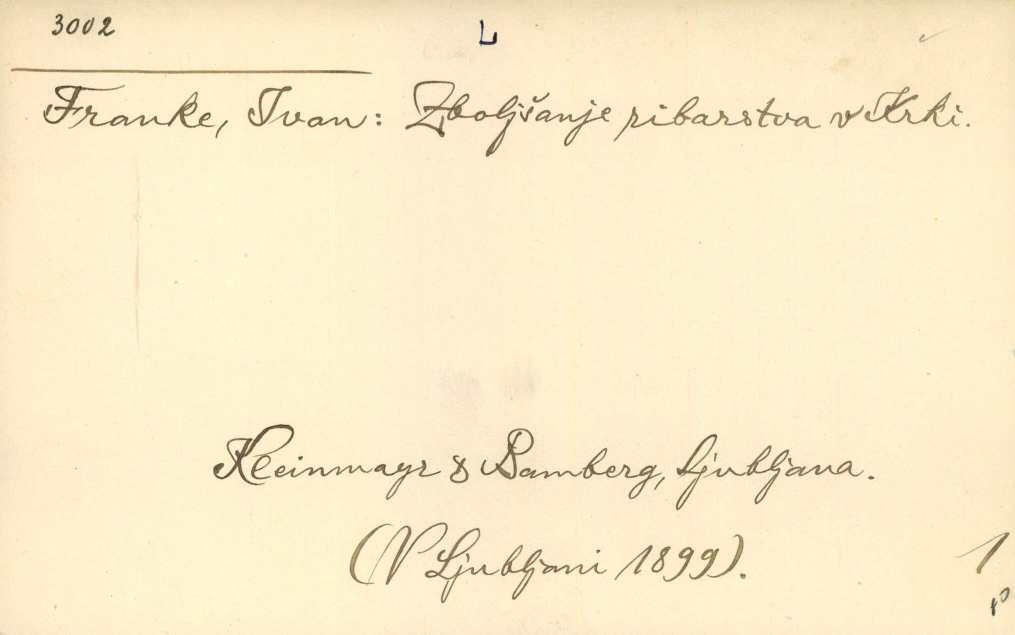 3002
L
Franke, Ivan: Zboljšanje ribarstva v Krki.
Kleinmayr & Bamberg, Ljubljana.
(V Ljubljani 1899).
1